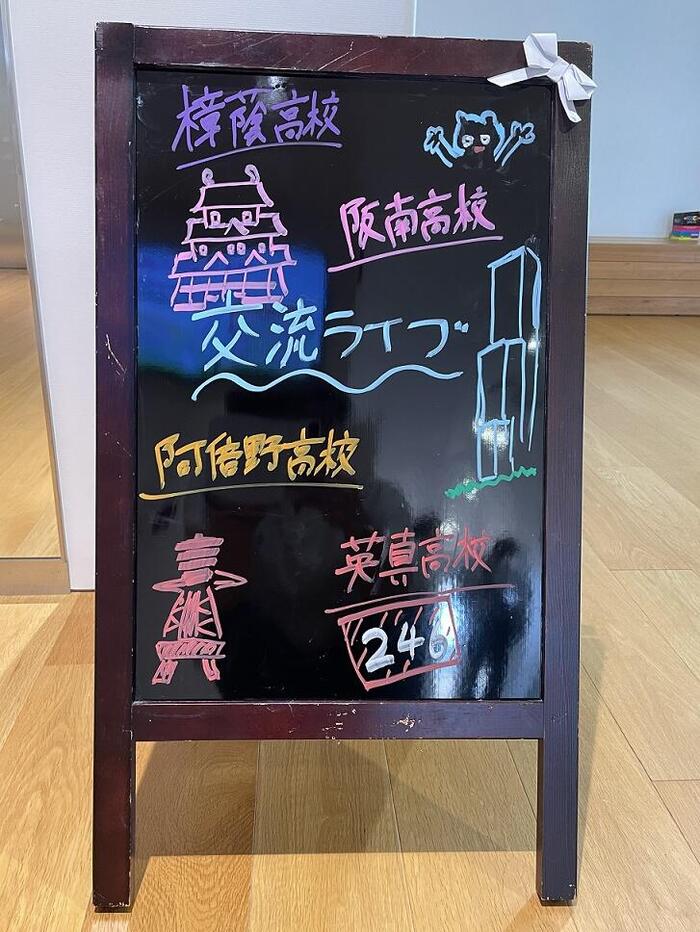 樟蔭高校
阪南高校
交流ライブ
阿倍野高校
英真高校
246